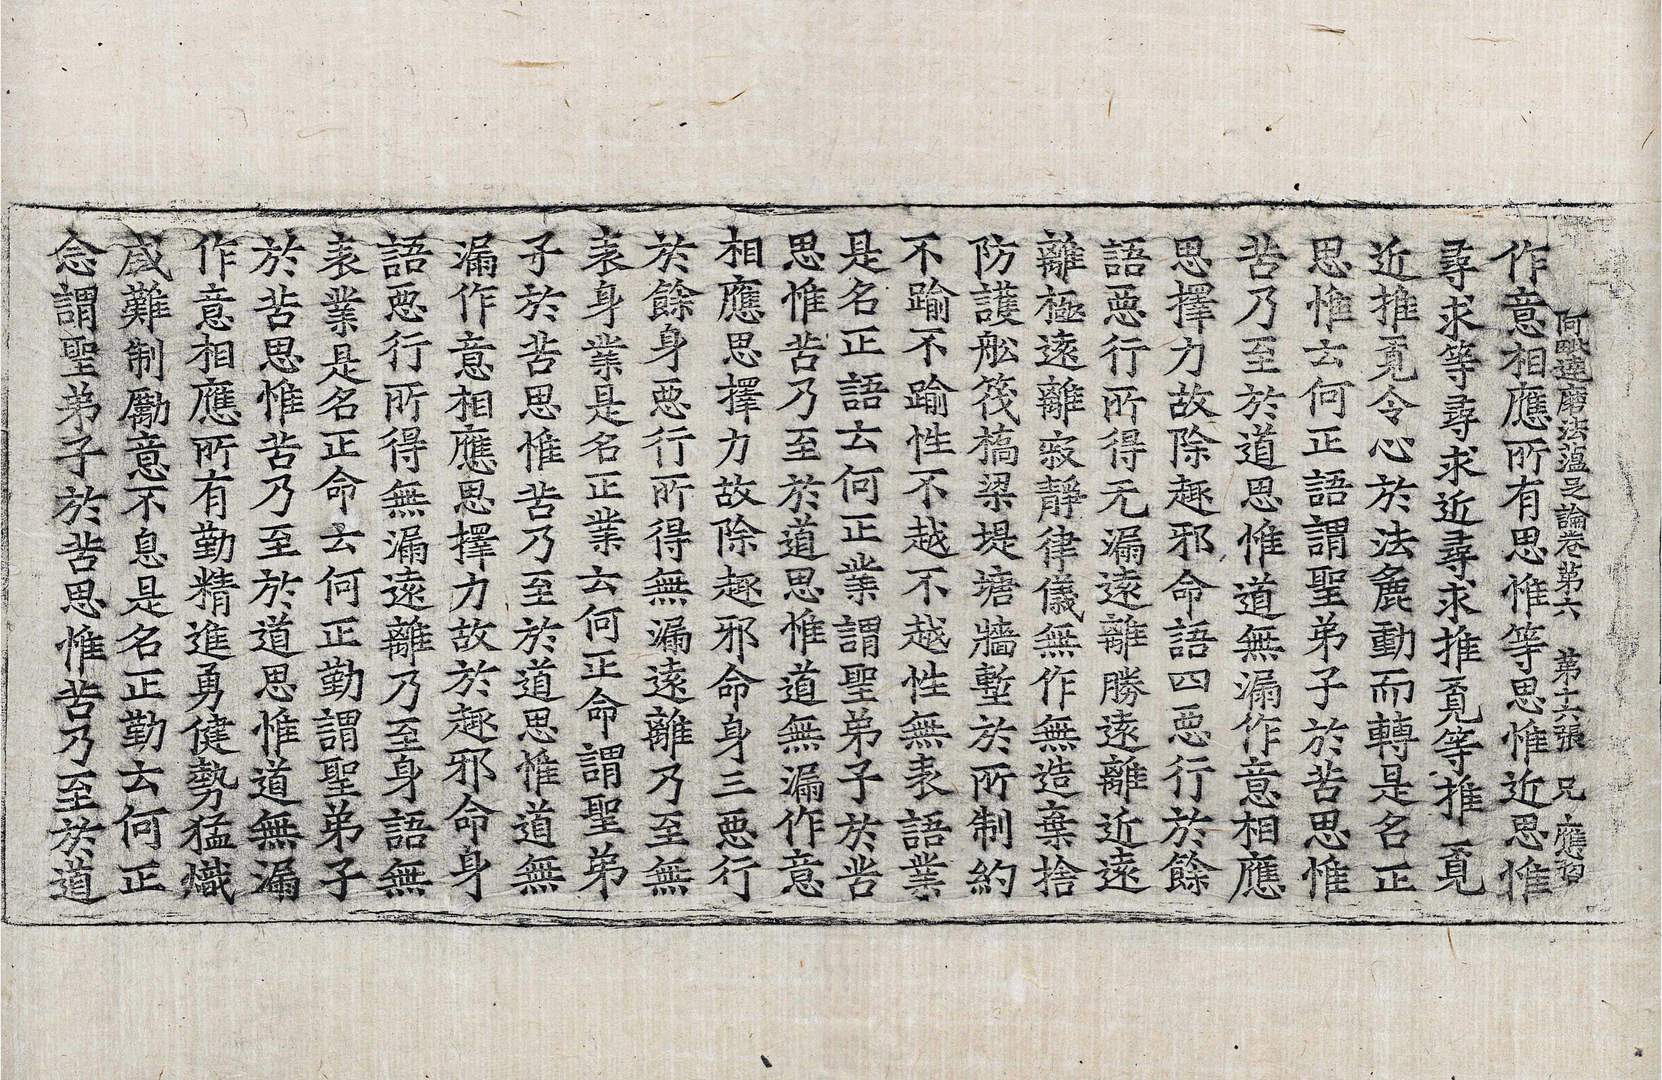 阿毗達磨法蘊足論卷第六　第十六張　兄　應
作意相應所有思惟等思惟近思惟
尋求等尋求近尋求推覓等推覓
近推覓令心於法麁動而轉是名正
思惟云何正語謂聖弟子於苦思惟
苦乃至於道思惟道無漏作意相應
思擇力故除趣邪命語四惡行於餘
語惡行所得无漏遠離勝遠離近遠
離極遠離寂靜律儀無作無造棄捨
防護舩筏橋梁堤塘牆塹於所制約
不踰不踰性不越不越性無表語業
是名正語云何正業謂聖弟子於苦
思惟苦乃至於道思惟道無漏作意
相應思擇力故除趣邪命身三惡行
於餘身惡行所得無漏遠離乃至無
表身業是名正業云何正命謂聖弟
子於苦思惟苦乃至於道思惟道無
漏作意相應思擇力故於趣邪命身
語惡行所得無漏遠離乃至身語無
表業是名正命云何正勤謂聖弟子
於苦思惟苦乃至於道思惟道無漏
作意相應所有勤精進勇健勢猛熾
盛難制勵意不息是名正勤云何正
念謂聖弟子於苦思惟苦乃至於道